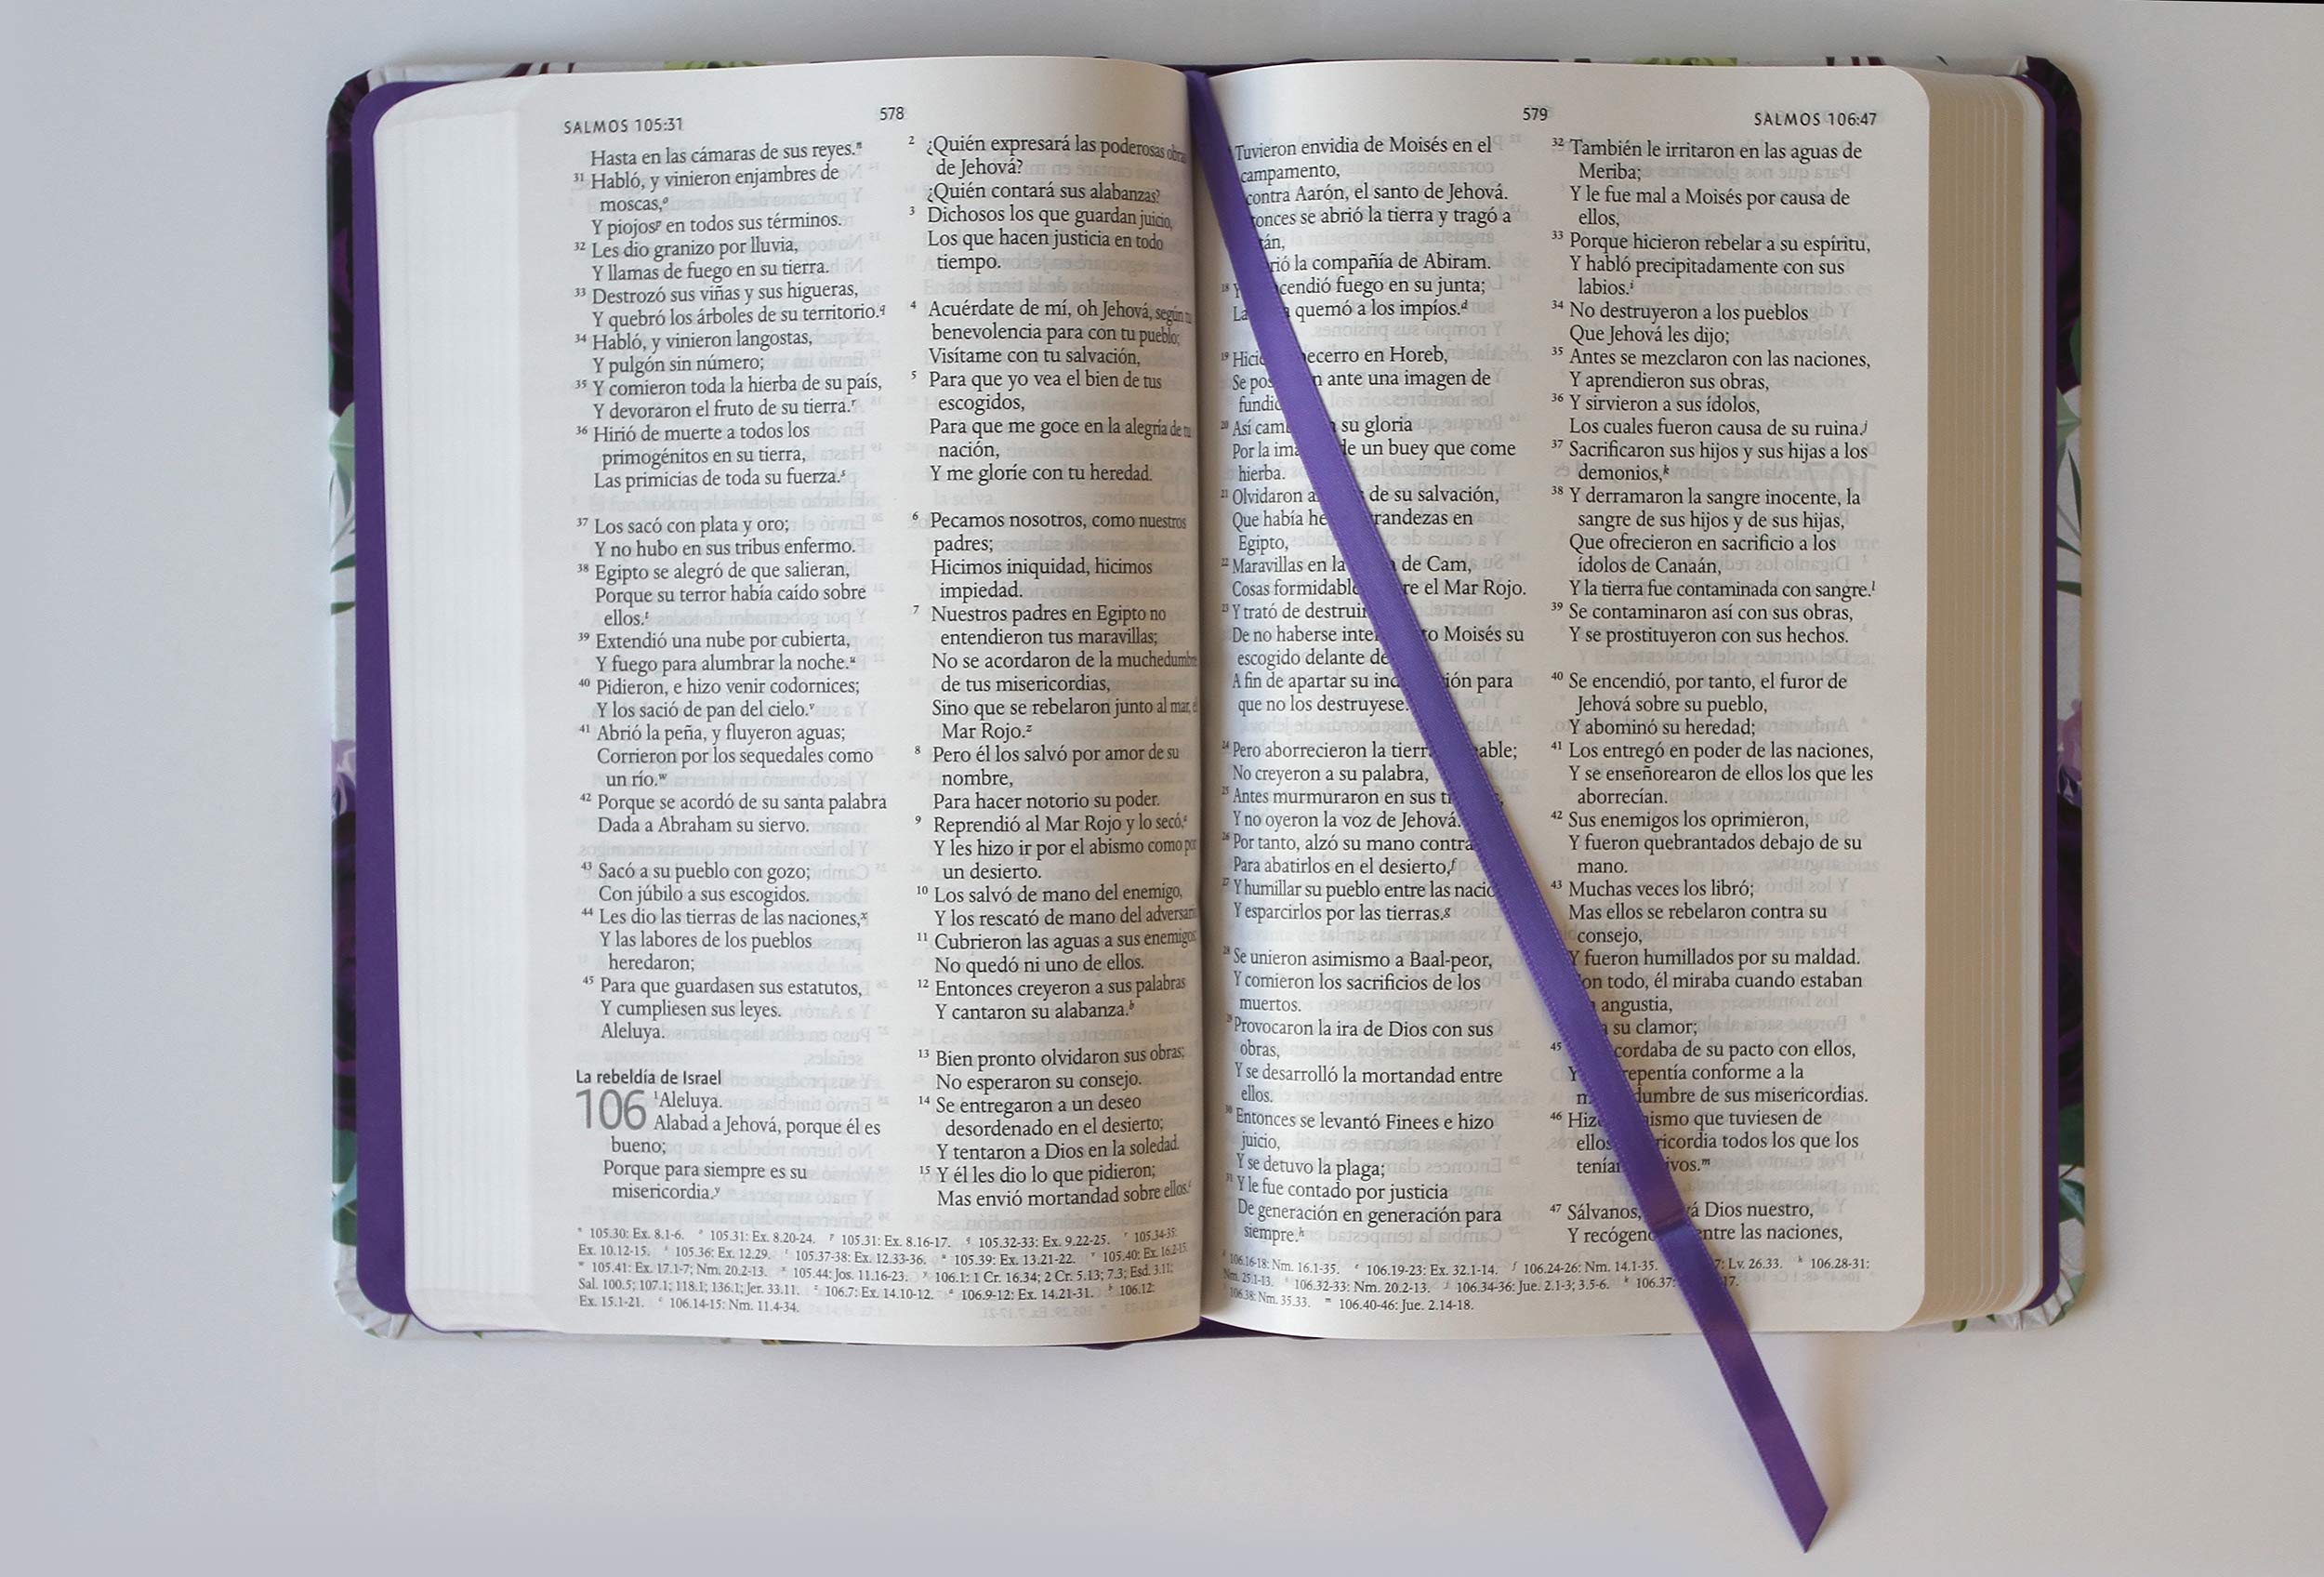 SALMOS 105:31
578
Hasta en las cámaras de sus reyes.ⁿ
31 Habló, y vinieron enjambres de
moscas,º
Y piojosᵖ en todos sus términos.
32 Les dio granizo por lluvia,
Y llamas de fuego en su tierra.
33 Destrozó sus viñas y sus higueras,
Y quebró los árboles de su territorio.q
34 Habló, y vinieron langostas,
Y pulgón sin número;
35 Y comieron toda la hierba de su país,
Y devoraron el fruto de su tierra.ʳ
36 Hirió de muerte a todos los
primogénitos en su tierra,
Las primicias de toda su fuerza.ˢ
37 Los sacó con plata y oro;
Y no hubo en sus tribus enfermo.
38 Egipto se alegró de que salieran,
Porque su terror había caído sobre
ellos.ᵗ
39 Extendió una nube por cubierta,
Y fuego para alumbrar la noche.ᵘ
40 Pidieron, e hizo venir codornices;
Y los sació de pan del cielo.ᵛ
41 Abrió la peña, y fluyeron aguas;
Corrieron por los sequedales como
un río.ʷ
42 Porque se acordó de su santa palabra
Dada a Abraham su siervo.
43 Sacó a su pueblo con gozo;
Con júbilo a sus escogidos.
44 Les dio las tierras de las naciones,ˣ
Y las labores de los pueblos
heredaron;
45 Para que guardasen sus estatutos,
Y cumpliesen sus leyes.
Aleluya.
La rebeldía de Israel
106 ¹Aleluya.
Alabad a Jehová, porque él es
bueno;
Porque para siempre es su
misericordia.ʸ
2 ¿Quién expresará las poderosas obras
de Jehová?
¿Quién contará sus alabanzas?
3 Dichosos los que guardan juicio,
Los que hacen justicia en todo
tiempo.
4 Acuérdate de mí, oh Jehová, según tu
benevolencia para con tu pueblo;
Visítame con tu salvación,
5 Para que yo vea el bien de tus
escogidos,
Para que me goce en la alegría de tu
nación,
Y me gloríe con tu heredad.
6 Pecamos nosotros, como nuestros
padres;
Hicimos iniquidad, hicimos
impiedad.
7 Nuestros padres en Egipto no
entendieron tus maravillas;
No se acordaron de la muchedumbre
de tus misericordias,
Sino que se rebelaron junto al mar, el
Mar Rojo.ᶻ
8 Pero él los salvó por amor de su
nombre,
Para hacer notorio su poder.
9 Reprendió al Mar Rojo y lo secó,ᵃ
Y les hizo ir por el abismo como por
un desierto.
10 Los salvó de mano del enemigo,
Y los rescató de mano del adversario
11 Cubrieron las aguas a sus enemigos
No quedó ni uno de ellos.
12 Entonces creyeron a sus palabras
Y cantaron su alabanza.ᵇ
13 Bien pronto olvidaron sus obras;
No esperaron su consejo.
14 Se entregaron a un deseo
desordenado en el desierto;
Y tentaron a Dios en la soledad.
15 Y él les dio lo que pidieron;
Mas envió mortandad sobre ellos.ᶜ
ⁿ 105.30: Ex. 8.1-6. º 105.31: Ex. 8.20-24. ᵖ 105.31: Ex. 8.16-17. q 105.32-33: Ex. 9.22-25. ʳ 105.34-35:
Ex. 10.12-15. ˢ 105.36: Ex. 12.29. ᵗ 105.37-38: Ex. 12.33-36. ᵘ 105.39: Ex. 13.21-22. ᵛ 105.40: Ex. 16.2-15.
ʷ 105.41: Ex. 17.1-7; Nm. 20.2-13. ˣ 105.44: Jos. 11.16-23. ʸ 106.1: 1 Cr. 16.34; 2 Cr. 5.13; 7.3; Esd. 3.11;
Sal. 100.5; 107.1; 118.1; 136.1; Jer. 33.11. ᶻ 106.7: Ex. 14.10-12. ᵃ 106.9-12: Ex. 14.21-31. ᵇ 106.12:
Ex. 15.1-21. ᶜ 106.14-15: Nm. 11.4-34.
579
SALMOS 106:47
Tuvieron envidia de Moisés en el
campamento,
contra Aarón, el santo de Jehová.
se abrió la tierra y tragó a
la compañía de Abiram.
18 Y fuego en su junta;
quemó a los impíos.ᵈ
19 becerro en Horeb,
Se ante una imagen de
20 Así su gloria
Por la de un buey que come
hierba.
21 Olvidaron de su salvación,
Que había grandezas en
Egipto,
22 Maravillas en la de Cam,
Cosas formidables el Mar Rojo.
23 Y trató de destruir
De no haberse Moisés su
escogido delante de
A fin de apartar su para
que no los destruyese.
24 Pero aborrecieron la tierra
No creyeron a su palabra,
25 Antes murmuraron en sus
Y no oyeron la voz de Jehová.
26 Por tanto, alzó su mano contra
Para abatirlos en el desierto,ᶠ
27 Y humillar su pueblo entre las
Y esparcirlos por las tierras.ᵍ
28 Se unieron asimismo a Baal-peor,
Y comieron los sacrificios de los
muertos.
29 Provocaron la ira de Dios con sus
obras,
Y se desarrolló la mortandad entre
ellos.
30 Entonces se levantó Finees e hizo
juicio,
Y se detuvo la plaga;
31 Y le fue contado por justicia
De generación en generación para
siempre.ʰ
32 También le irritaron en las aguas de
Meriba;
Y le fue mal a Moisés por causa de
ellos,
33 Porque hicieron rebelar a su espíritu,
Y habló precipitadamente con sus
labios.ⁱ
34 No destruyeron a los pueblos
Que Jehová les dijo;
35 Antes se mezclaron con las naciones,
Y aprendieron sus obras,
36 Y sirvieron a sus ídolos,
Los cuales fueron causa de su ruina.ʲ
37 Sacrificaron sus hijos y sus hijas a los
demonios,ᵏ
38 Y derramaron la sangre inocente, la
sangre de sus hijos y de sus hijas,
Que ofrecieron en sacrificio a los
ídolos de Canaán,
Y la tierra fue contaminada con sangre.ˡ
39 Se contaminaron así con sus obras,
Y se prostituyeron con sus hechos.
40 Se encendió, por tanto, el furor de
Jehová sobre su pueblo,
Y abominó su heredad;
41 Los entregó en poder de las naciones,
Y se enseñorearon de ellos los que les
aborrecían.
42 Sus enemigos los oprimieron,
Y fueron quebrantados debajo de su
mano.
43 Muchas veces los libró;
Mas ellos se rebelaron contra su
consejo,
Y fueron humillados por su maldad.
Con todo, él miraba cuando estaban
angustia,
su clamor;
45 acordaba de su pacto con ellos,
Y conforme a la
de sus misericordias.
46 Hizo que tuviesen de
ellos todos los que los
47 Sálvanos, Dios nuestro,
Y entre las naciones,
ᵈ 106.16-18: Nm. 16.1-35. ᵉ 106.19-23: Ex. 32.1-14. ᶠ 106.24-26: Nm. 14.1-35. Lv. 26.33. ʰ 106.28-31:
Nm. 25.1-13. ⁱ 106.32-33: Nm. 20.2-13. ʲ 106.34-36: Jue. 2.1-3; 3.5-6. ᵏ 106.37:
106.38: Nm. 35.33. ᵐ 106.40-46: Jue. 2.14-18.